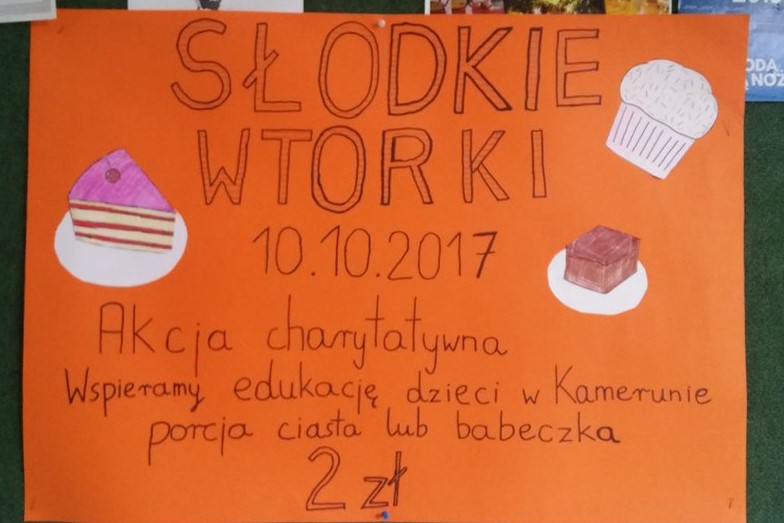 SŁODKIE
WTORKI
10.10.2017
Akcja charytatywna
Wspieramy edukację dzieci w Kamerunie
porcja ciasta lub babeczka
2 zł